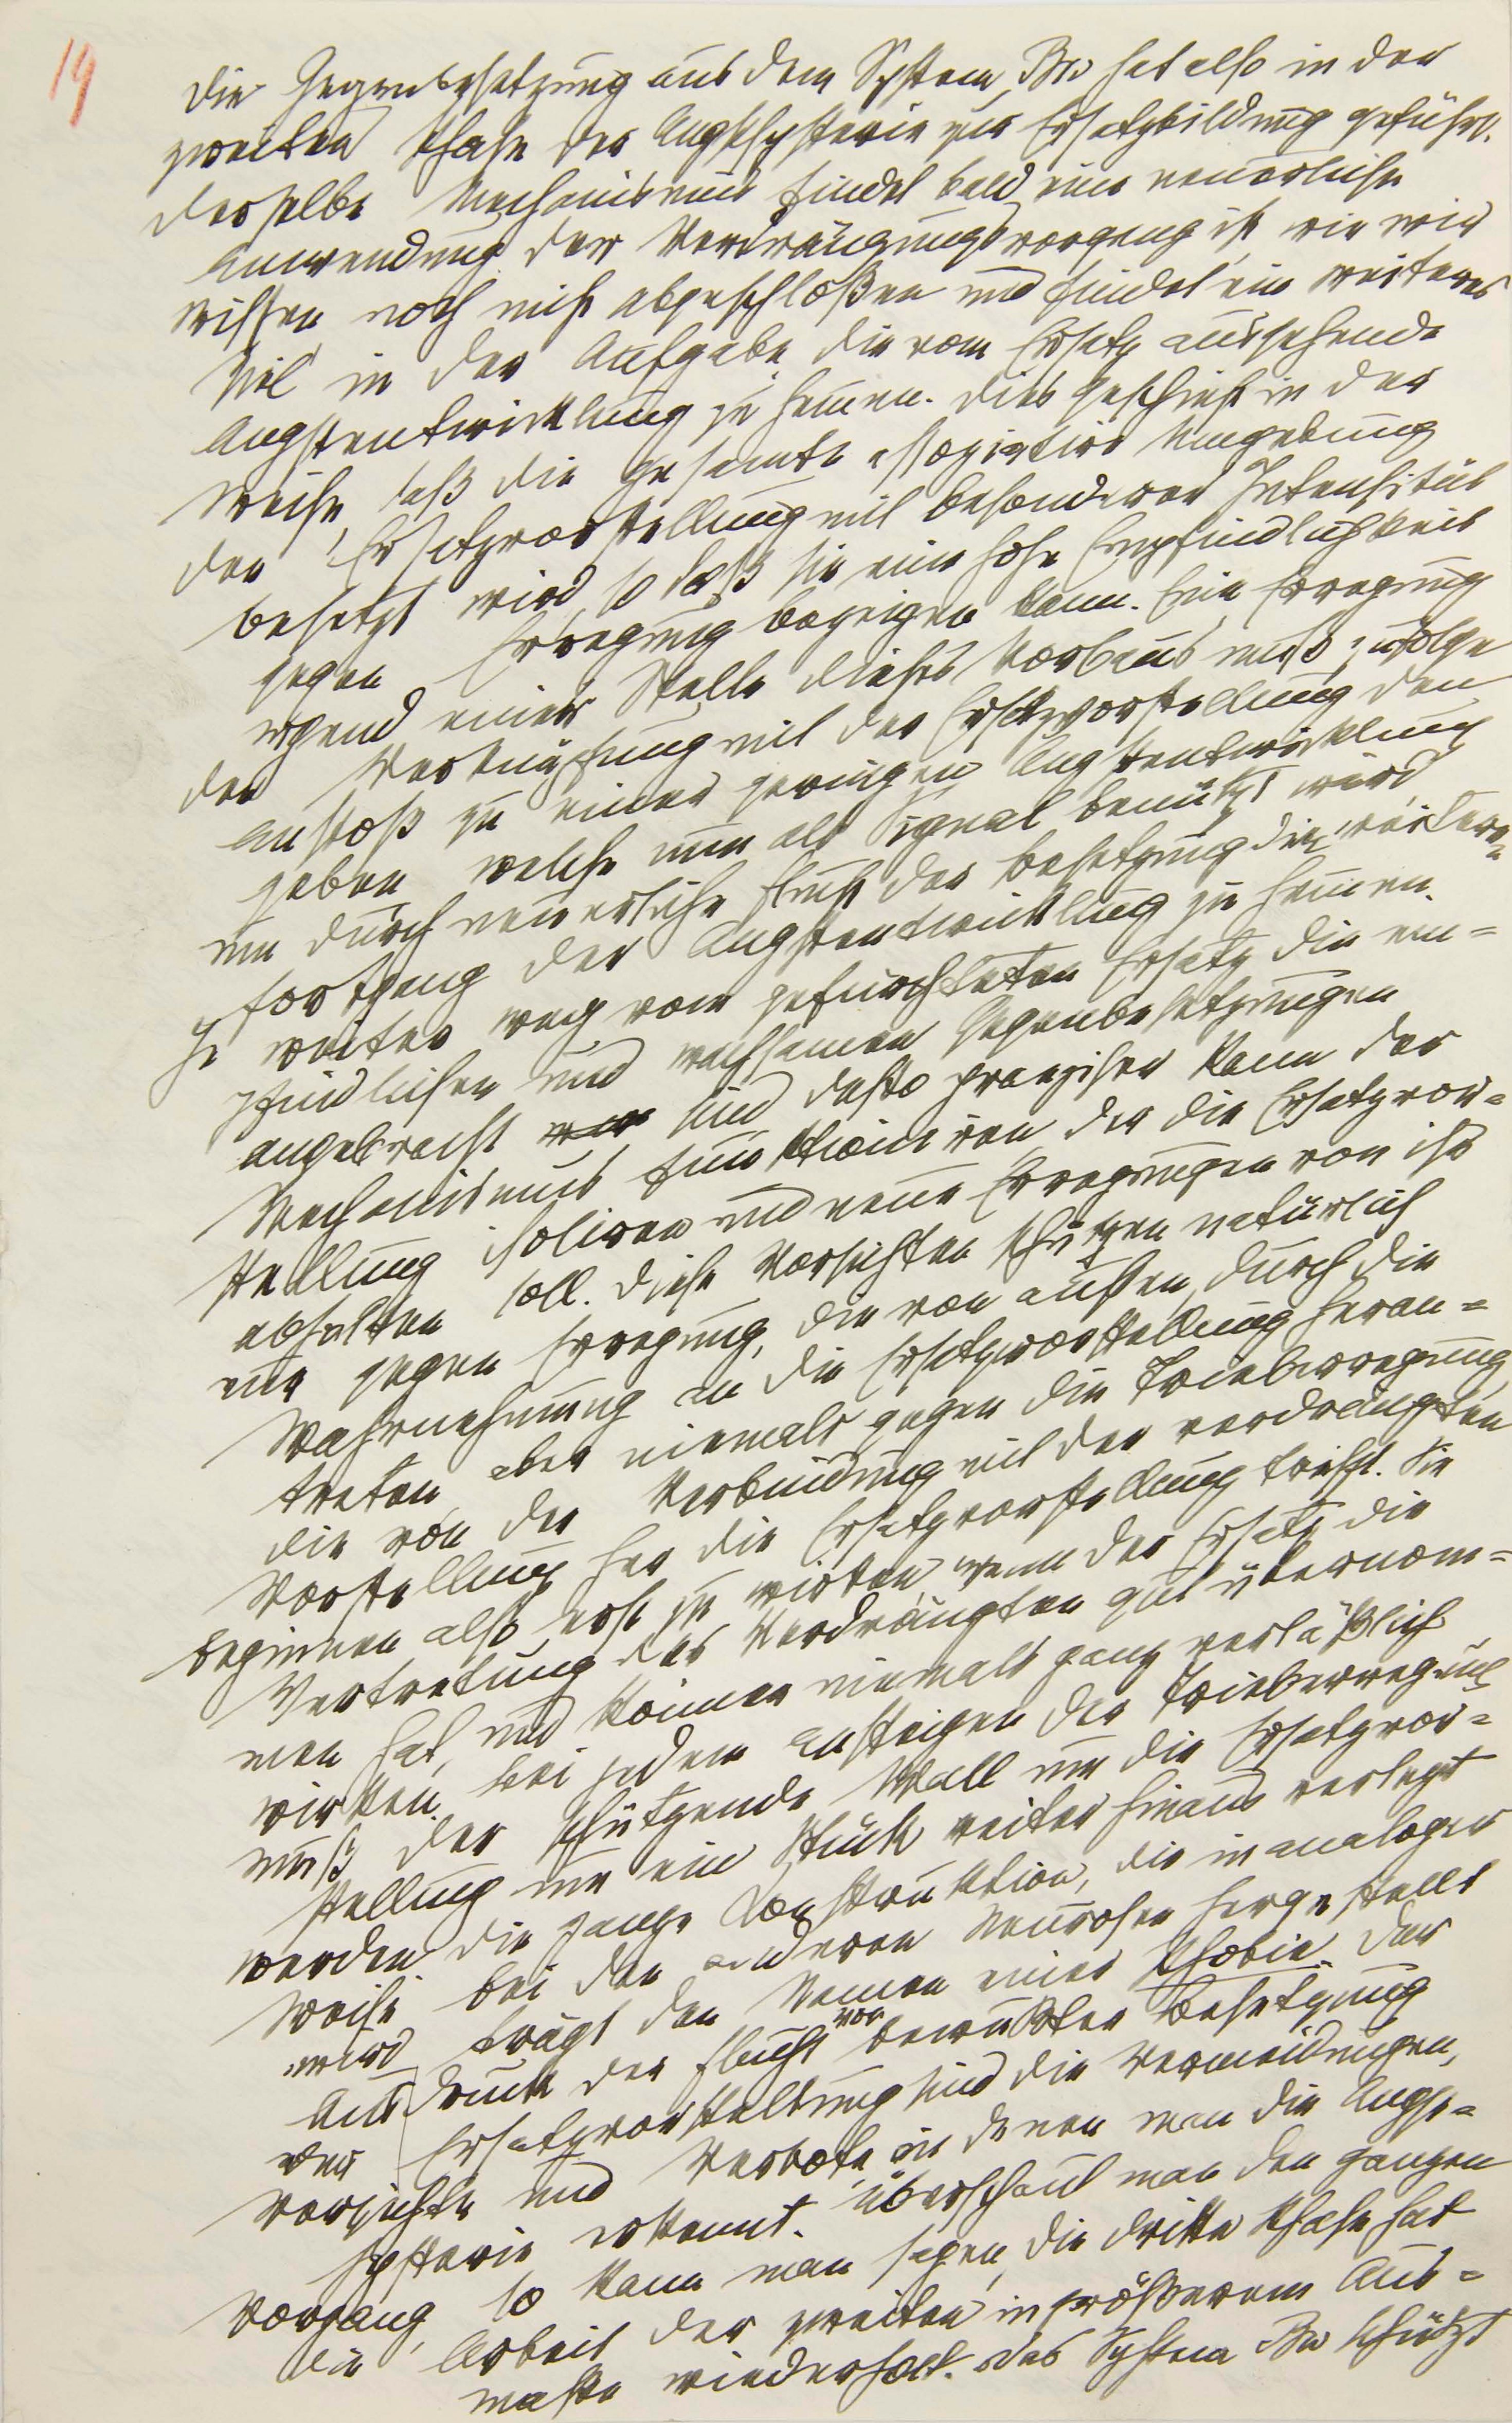 19
Die Gegenbesetzung aus dem System Bw hat also in der
zweiten Phase der Angsthysterie zur Ersatzbildung geführt.
Derselbe Mechanismus findet bald eine neuerliche
Anwendung. Der Verdrängungsvorgang ist, wie wir
wissen, noch nicht abgeschloßen und findet ein weiteres
Ziel in der Aufgabe, die vom Ersatz ausgehende
Angstentwicklung zu hemen. Dies geschieht in der
Weise, daß die gesamte assoziative Umgebung
der Ersatzvorstellung mit besonderer Intensität
besetzt wird, so daß sie eine hohe Empfindlichkeit
gegen Erregung bezeigen kann. Eine Erregung
irgend einer Stelle dieses Vorbaus muß zufolge
der Verknüpfung mit der Ersatzvorstellung den
Anstoß zu einer geringen Angstentwicklung
geben, welche nun als Signal benützt wird,
um durch neuerliche Flucht der Besetzung den weiteren
Fortgang der Angstentwicklung zu hemen.
Je weiter weg vom gefürchteten Ersatz die em=
pfindlichen und wachsamen Gegenbesetzungen
angebracht sind, desto präziser kann der
Mechanismus funktioniren, der die Ersatzvor=
stellung isoliren und neue Erregungen von ihr
abhalten soll. Diese Vorsichten schützen natürlich
nur gegen Erregung, die von außen, durch die
Wahrnehmung an die Ersatzvorstellung heran=
treten, aber niemals gegen die Trieberregung,
die von der Verbindung mit der verdrängten
Vorstellung her die Ersatzvorstellung trifft. Sie
beginnen also erst zu wirken, wenn der Ersatz die
Vertretung des Verdrängten gut übernom=
men hat, und können niemals ganz verläßlich
wirken. Bei jedem Ansteigen der Trieberregung
muß der schützende Wall um die Ersatzvor=
stellung um ein Stück weiter hinaus verlegt
werden. Die ganze Construktion, die in analoger
Weise bei den anderen Neurosen hergestellt
wird, trägt den Namen einer Phobie. Der
Ausdruck der Flucht vor bewußter Besetzung
der Ersatzvorstellung sind die Vermeidungen,
Verzichte und Verbote, an denen man die Angst=
hysterie erkennt. Überschaut man den ganzen
Vorgang, so kann man sagen, die dritte Phase hat
die Arbeit der zweiten in größerem Aus=
maße wiederholt. Das System Bw schützt